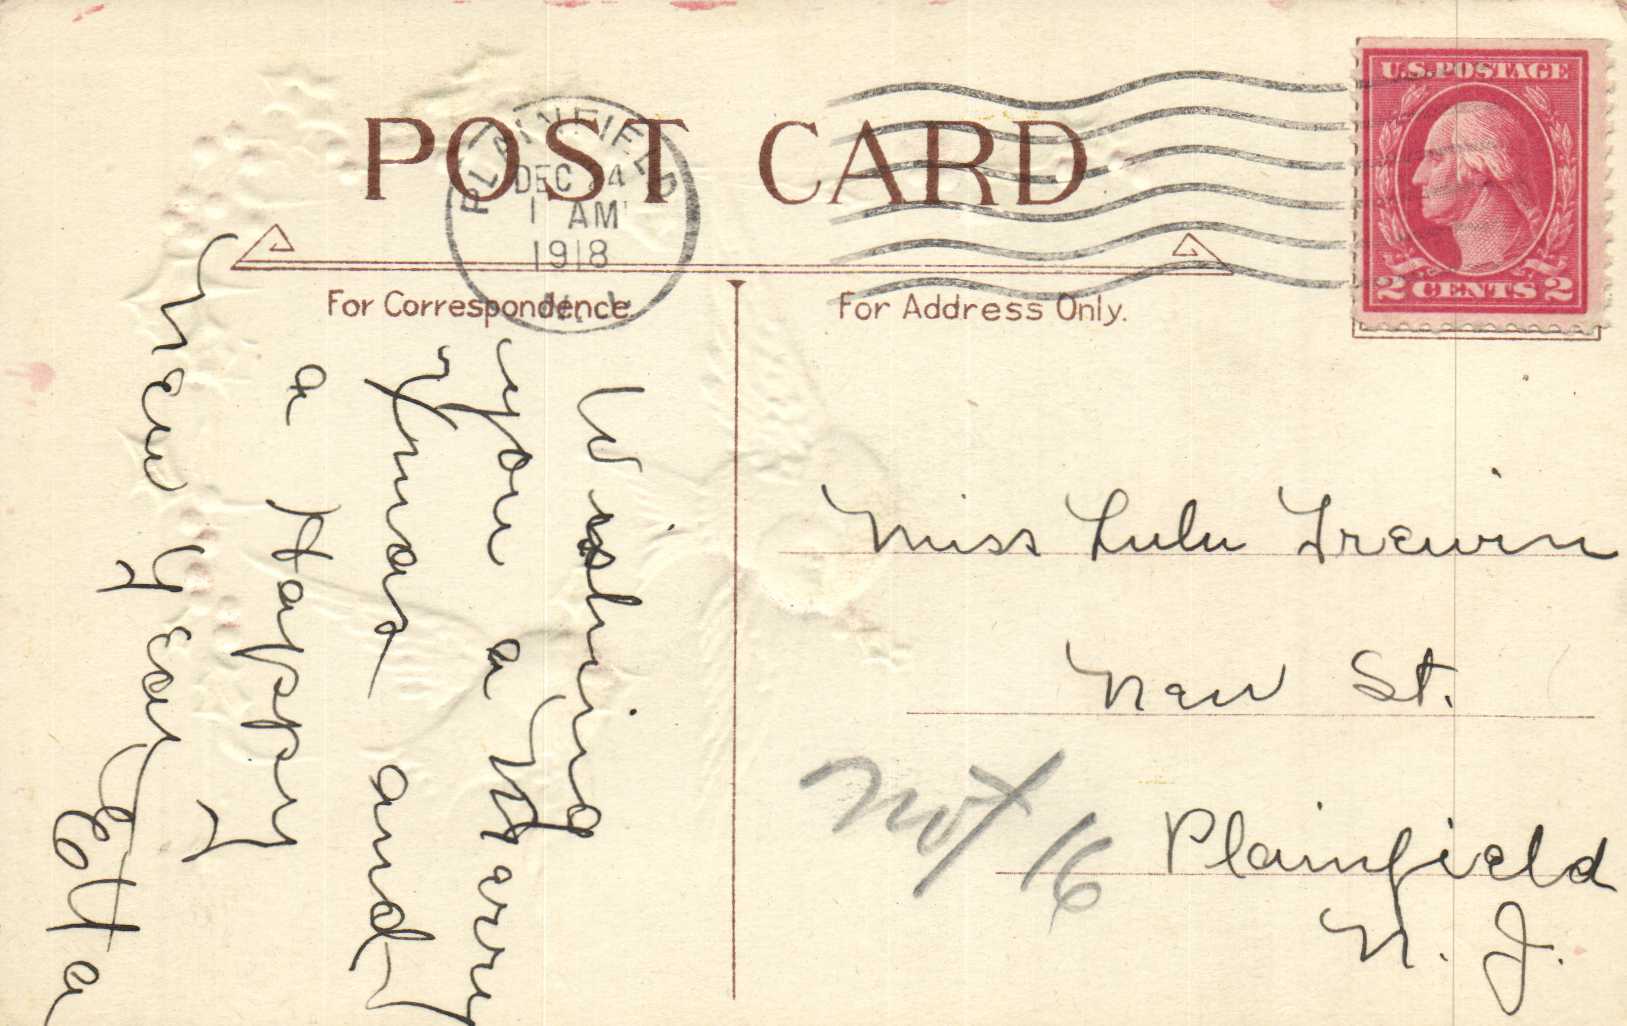 POST CARD
PLAINFIELD
DEC 24
1 AM
1918
N.J.
U.S. POSTAGE
2 CENTS 2
For Correspondence
For Address Only.
Wishing
you a Merry
Xmas and
a Happy
New Year
Etta
Miss Lulu Trewin
New St.
Not 16
Plainfield
N. J.